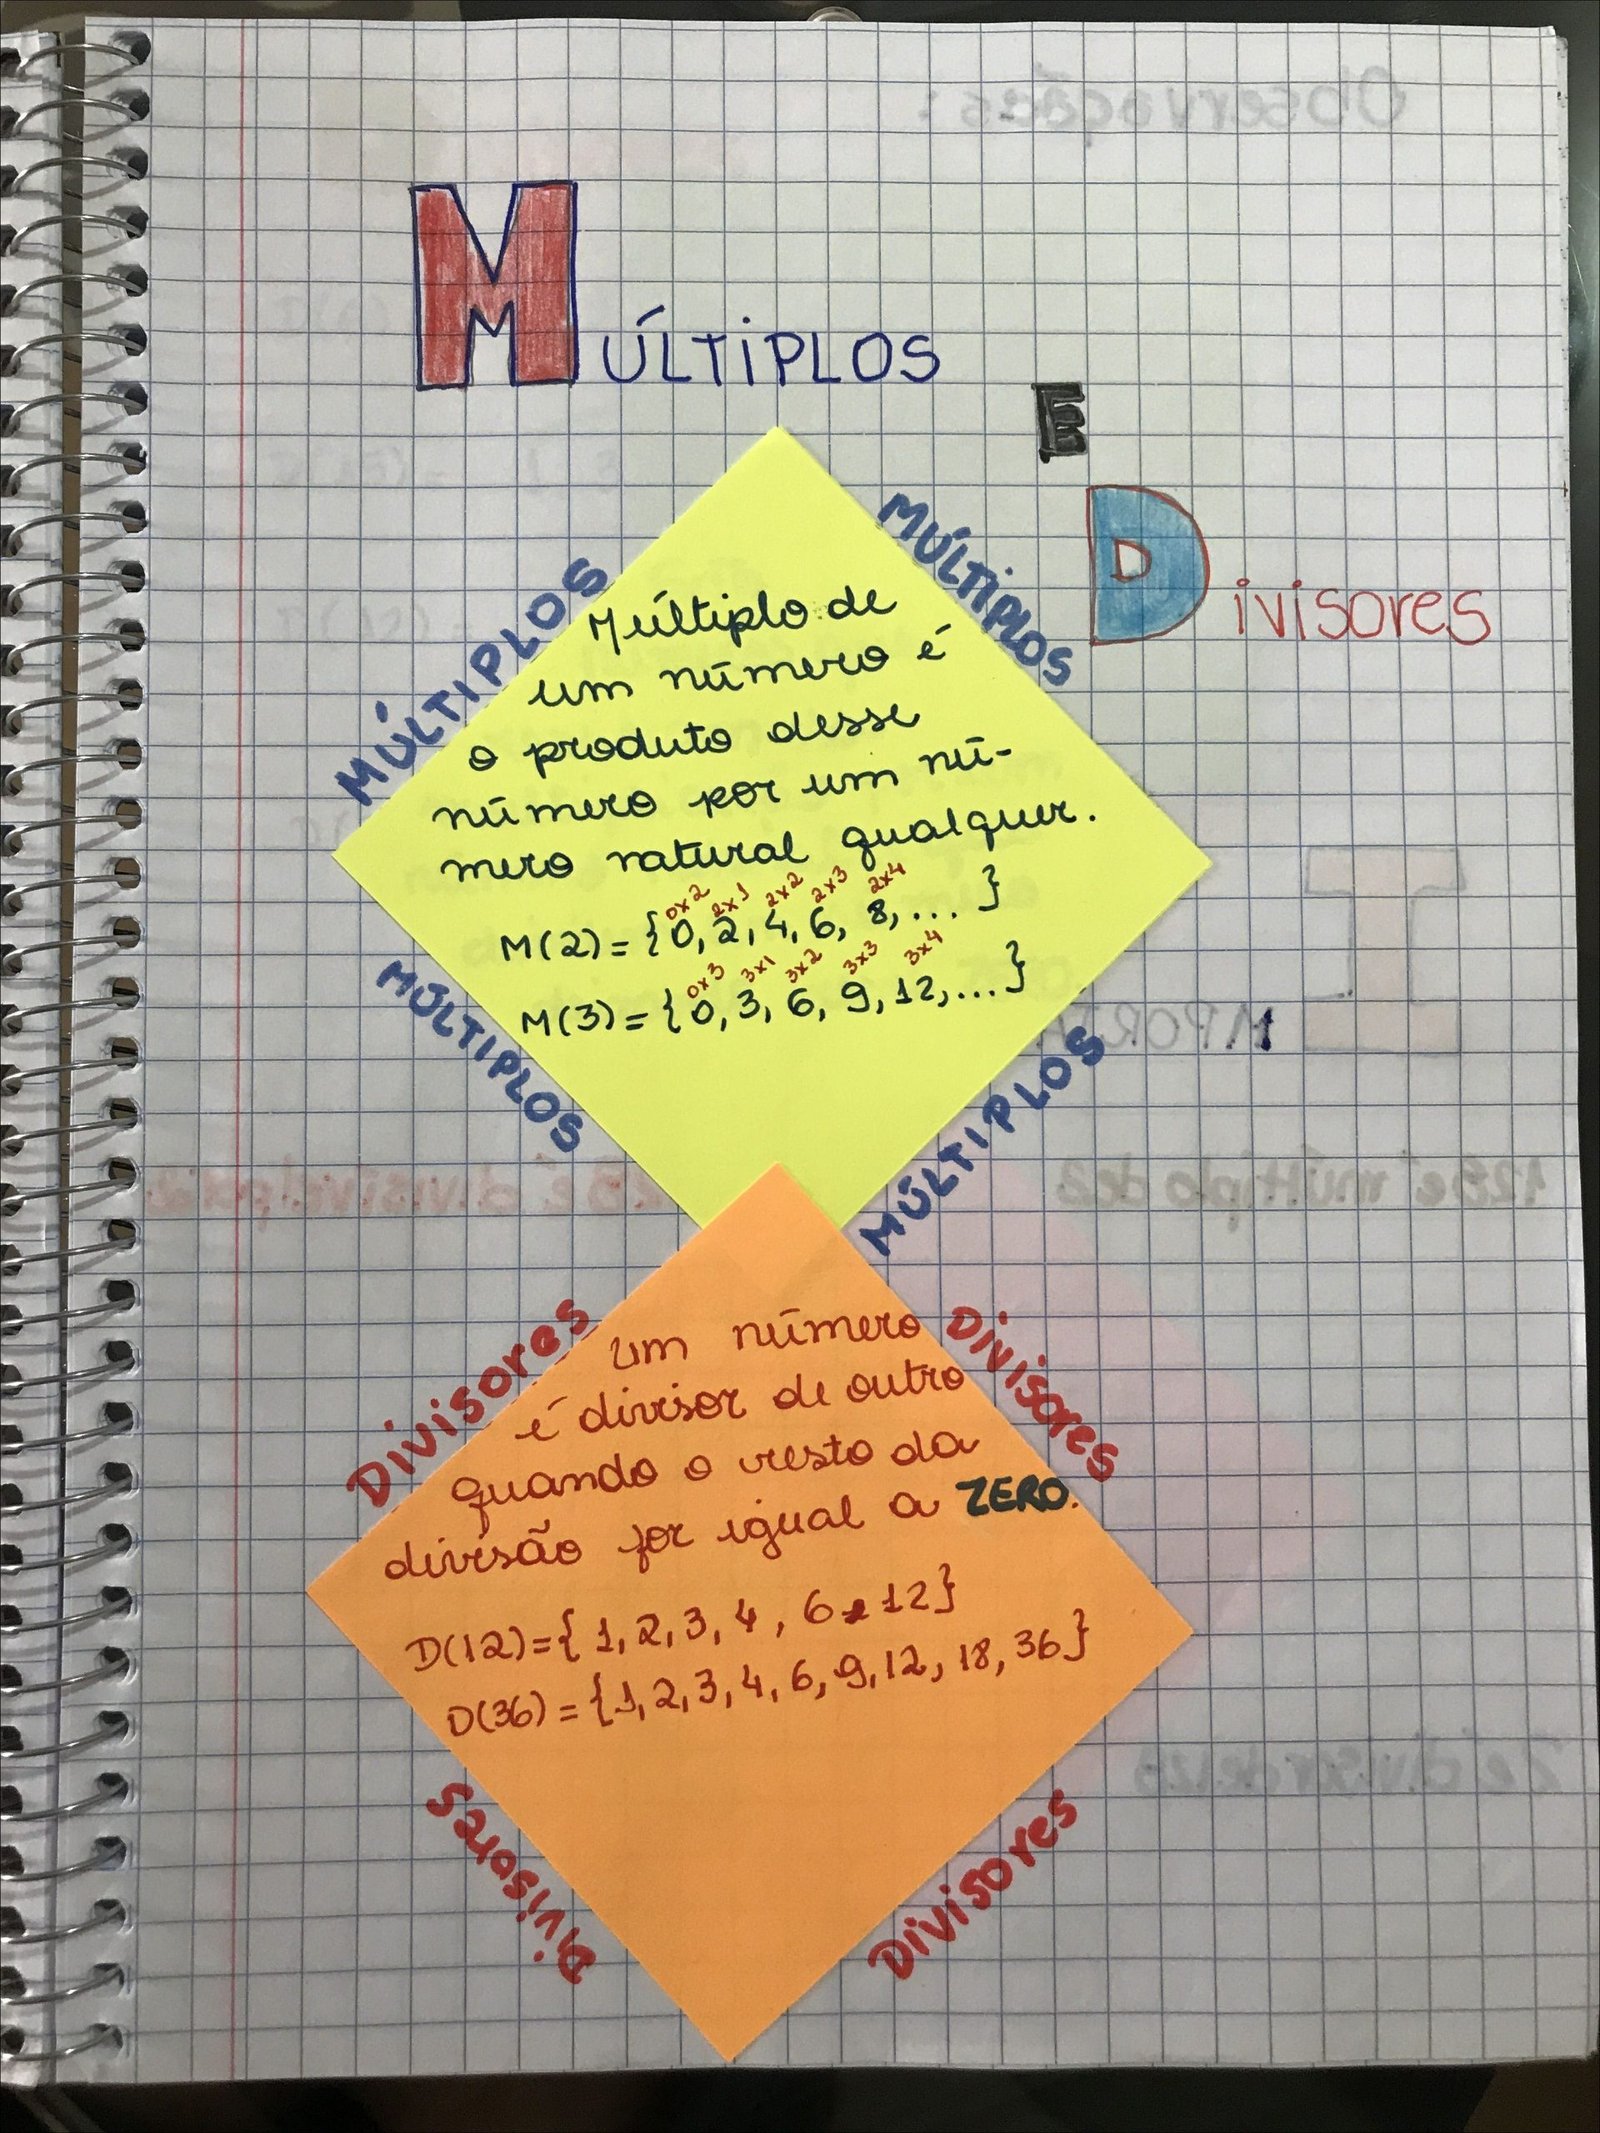 MÚLTIPLOS
E
Divisores
MÚLTIPLOS
MÚLTIPLOS
Múltiplo de
um número é
o produto desse
número por um nú-
mero natural qualquer.
0x2 2x1 2x2 2x3 2x4
M(2)={0, 2, 4, 6, 8,... }
0x3 3x1 3x2 3x3 3x4
M(3)={0, 3, 6, 9, 12,...}
MÚLTIPLOS
MÚLTIPLOS
Divisores
Divisores
um número
é divisor de outro
quando o resto da
divisão for igual a ZERO.
D(12)={1, 2, 3, 4, 6 e 12}
D(36)={1, 2, 3, 4, 6, 9, 12, 18, 36}
Divisores
Divisores